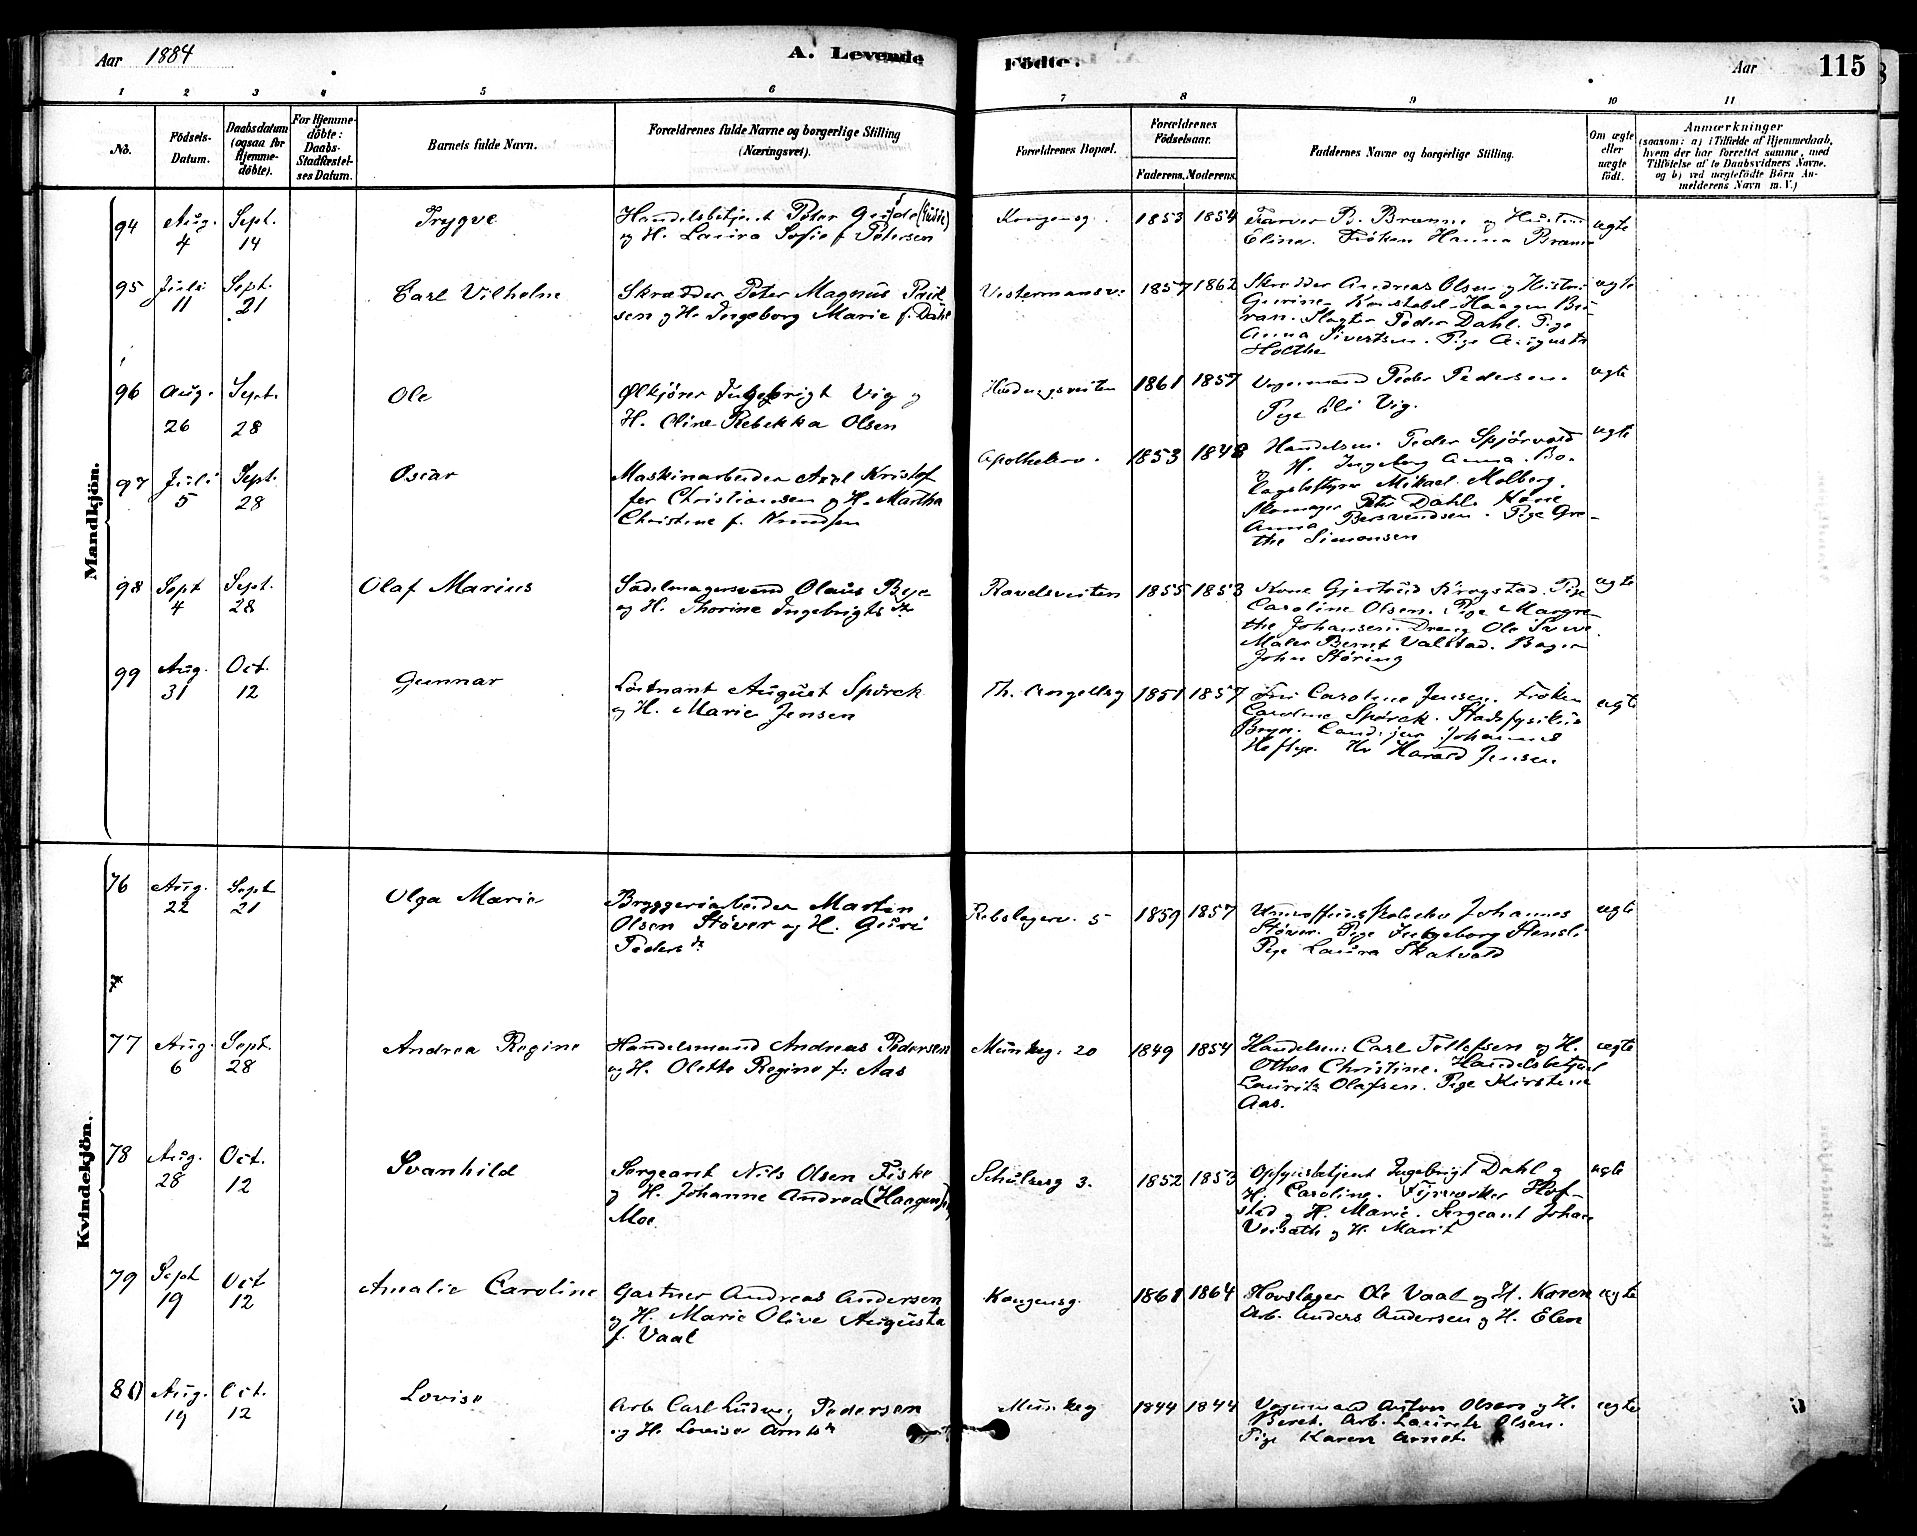 Aar 1884
A. Levende
Födte.
Aar 115
1 2 3 4 5 6 7 8 9 10 11
No.
Födsels-
Datum.
Daabsdatum
(ogsaa for
Hjemme-
döbte).
For Hjemme-
döbte:
Daabs-
Stadfæstel-
ses Datum.
Barnets fulde Navn.
Forældrenes fulde Navne og borgerlige Stilling
(Næringsvei).
Forældrenes Bopæl.
Forældrenes
Födselsaar.
Faderens. Moderens.
Faddernes Navne og borgerlige Stilling.
Om ægte
eller
uægte
födt.
Anmærkninger
(saasom: a) i Tilfælde af Hjemmedaab,
hvem der har forrettet samme, med
Tilföielse af to Daabsvidners Navne.
og b) ved uægtefödte Börn An-
melderens Navn m. V.)
Mandkjön.
94 Aug. 4 Sept. 14
Trygve
Handelsbetjent Peter Gude (Gude)
og H. Laura Sofie f. Petersen
Kongensg.
1853 1854
Farver B. Bramne og Hustru
Elina. Frøken Hanna Bramne
ægte
95 Juli 11 Sept. 21
Carl Vilhelm
Skrædder Peter Magnus
sen og H. Ingeborg Marie f. Dahl
Vestermansv.
1857 1862
Skrædder Andreas Olsen og Hustru
Gurine. Konstabel Haagen
Slagter Peder Dahl. Pige
Anna Sivertsen. Pige Augusta
Holthe
ægte
96 Aug. 26 Sept. 28
Ole
Ølkjører Ingebrigt Vig og
H. Oline Rebekka Olsen
1861 1857
Vognmand Peder Pedersen.
Pige Eli Vig.
ægte
97 Juli 5 Sept. 28
Oscar
Maskinarbeider Axel Kristof
fer Christiansen og H. Martha
Christine f. Knudsen
Apothekerv.
1853 1848
Handelsm. Peder Spjørvold
og H. Ingeborg Anna. Bo-
Mikael Molberg.
Skomager Peter Dahl. Kone
Anna Bersvendsen. Pige Gre-
the Simonsen
ægte
98 Sept 4 Sept. 28
Olaf Marius
Sadelmagersvend Olaus Bye
og H. Thorine Ingebrigtsdr.
Ravelsveiten
1855 1853
Kone Gjertrud Krogstad. Pige
Caroline Olsen. Pige Margre-
the Johansen. Dreng Ole
Maler Bernt Valstad. Bager
John Støring
ægte
99 Aug. 31 Oct. 12
Gunnar
Løitnant August Spørck
og H. Marie Jensen
Th. Angellsg
1851 1857
Fru Caroline Jensen. Frøken
Caroline Spørck. Stadsfysikus
Bryn. Cand. jur. Johannes
Heftye. Hr Harald Jensen
ægte
Kvindekjön.
76 Aug. 22 Sept 21
Olga Marie
Bryggeriarbeider Martin
Olsen Støver og H. Guri
Pedersdr.
Rebslagerv. 5
1859 1857
Underoffiersskoleelev Johannes
Støver. Pige Ingeborg Stensli
Pige Laura Skatvold
ægte
77 Aug. 6 Sept. 28
Andrea Regine
Handelsmand Andreas Pedersen
og H. Olette Regine f. Aas
Munkeg. 20
1849 1854
Handelsm. Carl Tellefsen og H.
Othea Christine. Handelsbetjent
Lauritz Olafsen. Pige Kirstine
Aas.
ægte
78 Aug. 28 Oct. 12
Svanhild
Sergeant Nils Olsen Fiske
og H. Johanne Andrea (Haagensd.)
Moe.
Schulzesg 3.
1852 1853
Opsynsbetjent Ingebrigt Dahl og
H. Caroline. Fyrværker Hof-
stad og H. Marie. Sergeant Johan
og H. Marit
ægte
79 Sept 19 Oct 12
Amalie Caroline
Gartner Andreas Andersen
og H. Marie Olive Augusta
f. Vaal
Kongensg.
1861 1864
Hovslager Ole Vaal og H. Karen
Arb. Anders Andersen og H. Elen
ægte
80 Aug. 19 Oct. 12
Lovise
Arb. Carl Ludvig Pedersen
og H. Lovise Arntsdr
Munkeg
1844 1844
Vognmand Anton Olsen og H.
Beret. Arb. Lauritz Olsen.
Pige Karen Arnet.
ægte